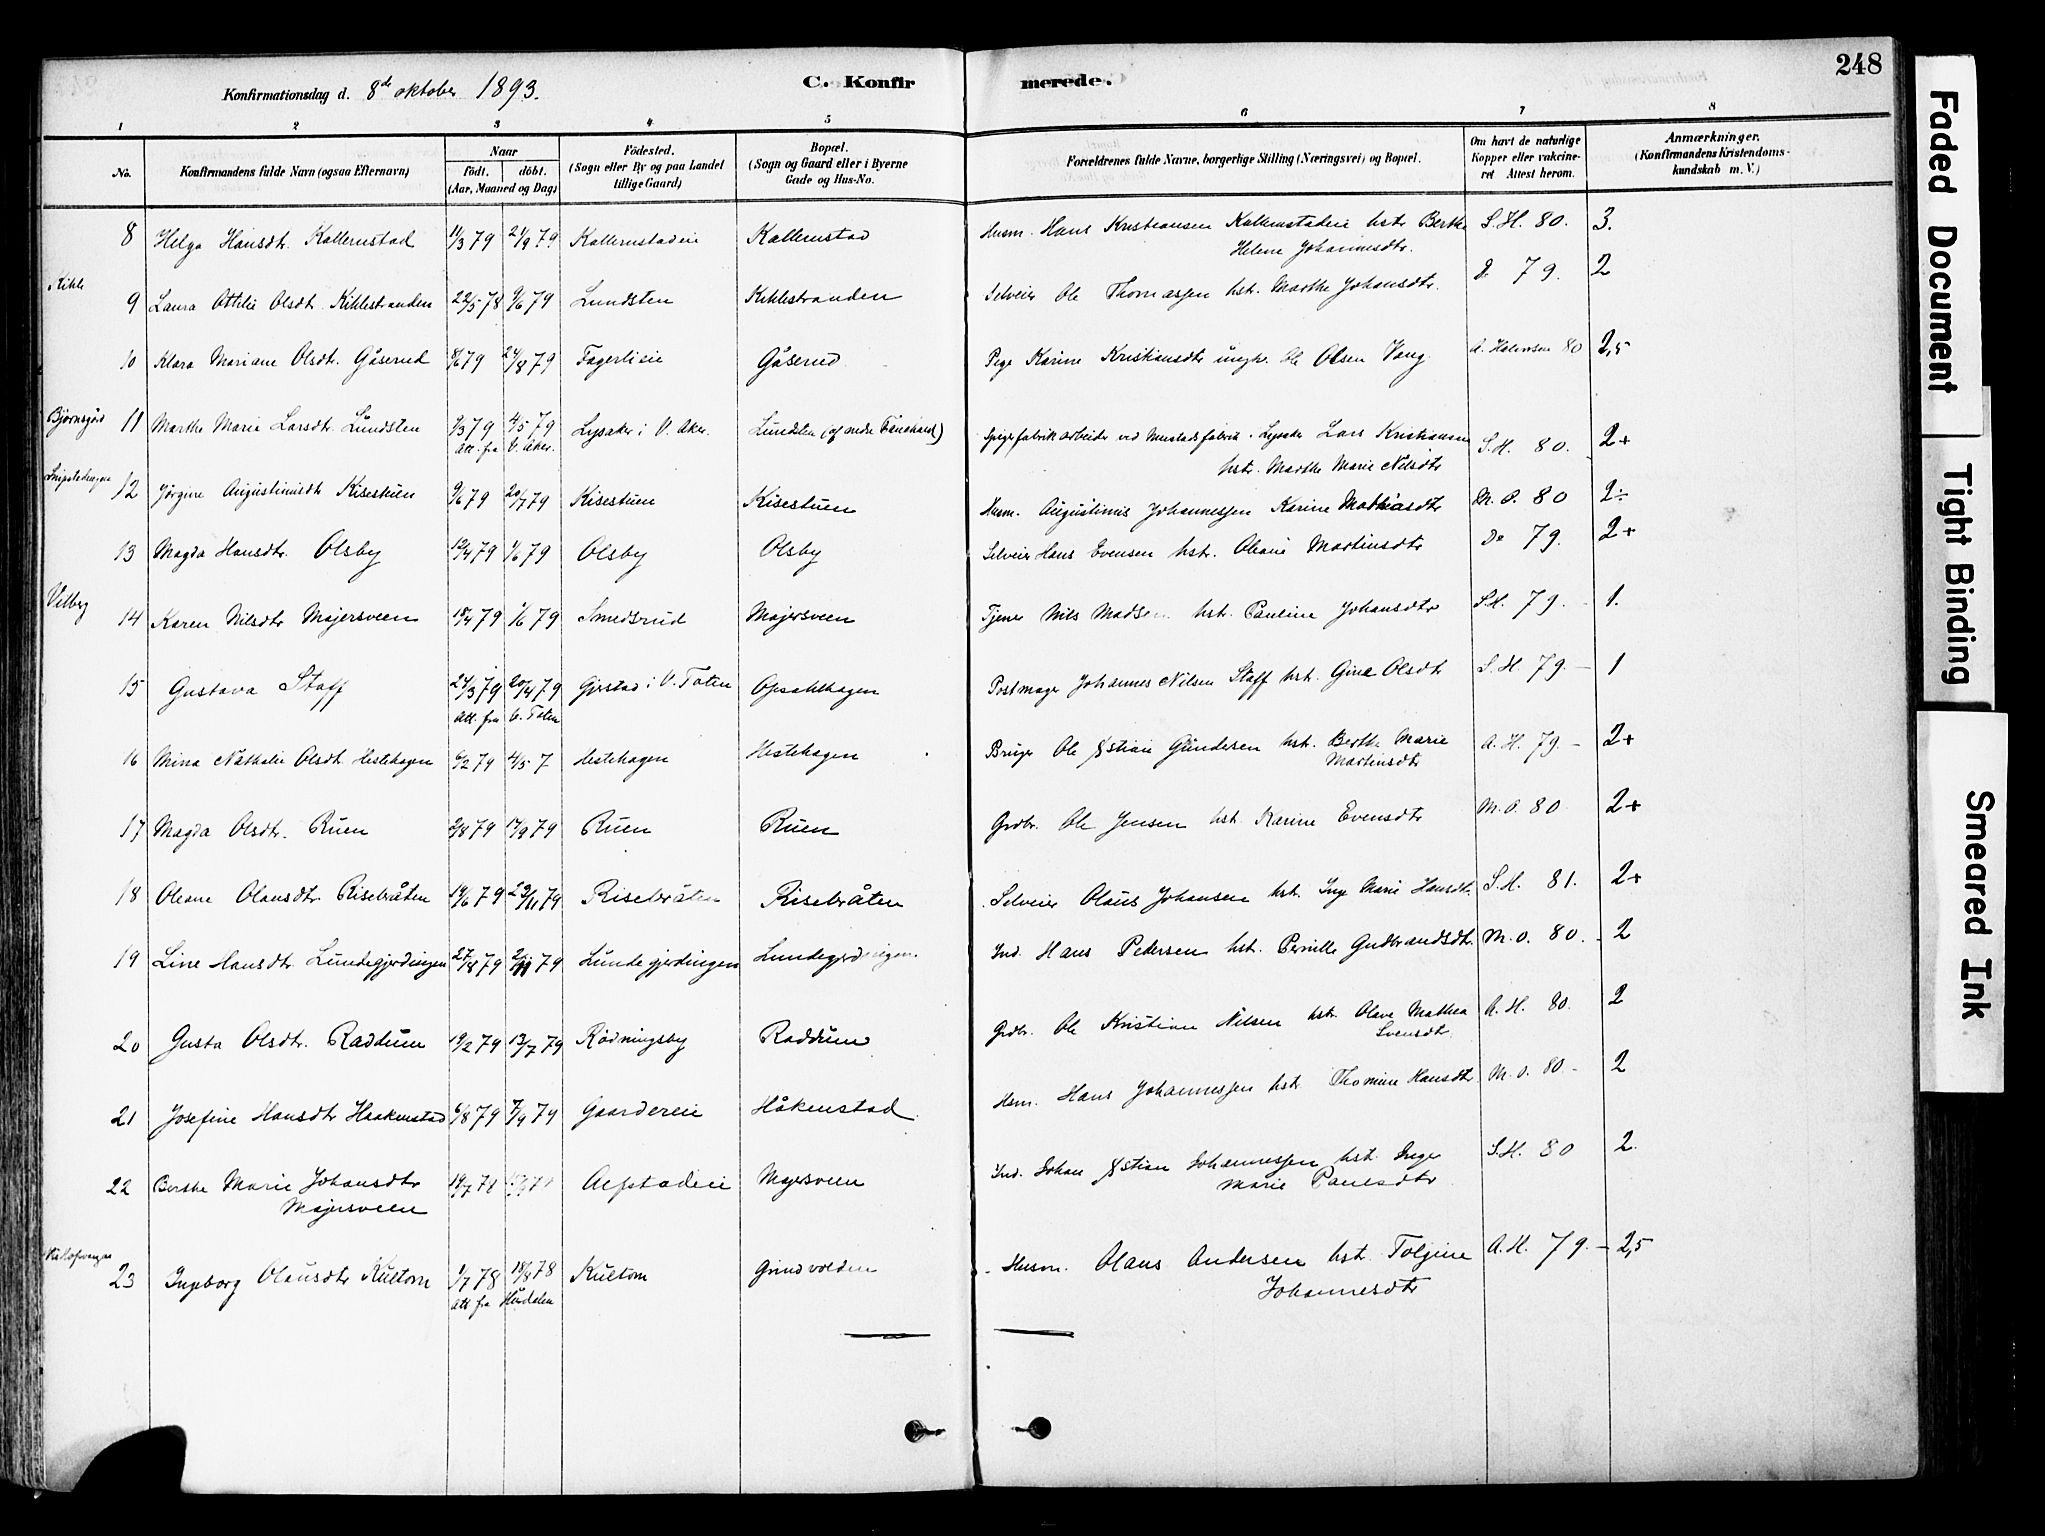 248
Konfirmationsdag d. 8de oktober 1893.
C. Konfirmerede.
1 2 3 4 5 6 7 8
No.
Konfirmandens fulde Navn (ogsaa Efternavn)
Naar
födt. döbt.
(Aar, Maaned og Dag)
Födested.
(Sogn eller By og paa Landet
tillige Gaard)
Bopæl.
(Sogn og Gaard eller i Byerne
Gade og Hus-No.
Forældrenes fulde Navne, borgerlige Stilling (Næringsvei) og Bopæl.
Om havt de naturlige
Kopper eller vakcine-
ret Attest herom.
Anmærkninger.
(Konfirmandens Kristendoms-
kundskab m. V.)
8 Helga Hansdtr. Kallerustad 11/3 79 21/9 79 Kallerustadeie Kallerustad Husm. Hans Kristiansen Kallerustadeie hstr. Berthe S. H. 80. 3.
Helene Johannesdtr.
Kihle
9 Laura Ottilie Olsdtr. Kihlestranden 22/5 78 9/6 79 Lundsten Kihlestranden Selveier Ole Thomassen hst. Marthe Johansdtr. 79. 2
10 Klara Mariane Olsdtr. Gåserud 8/6 79 24/8 79 Fagerlieie Gåserud Pige Karine Kristiansdtr ungk. Ole Olsen Vang A. Halvorsen 80 2,5
11 Marthe Marie Larsdtr. Lundsten 9/3 79 4/5 79 Lysaker i V. Aker. Lundsten Spigerfabrikarbeider ved Mustads fabrik. Lysaker Lars Kristiansen S. H. 80. 2+
Att. fra V. Aker.
hstr. Marthe Marie Nilsdtr
12 Jørgine Augustinusdtr Kisestuen 9/6 79 20/7 79 Kisestuen Kisestuen Husm. Augustinus Johannessen Karine Mathiasdtr M. O. 80 2÷
13 Magda Hansdtr. Olsby 12/4 79 1/6 79 Olsby Olsby Selveier Hans Evensen hstr. Oleane Martinsdtr Do 79. 2+
Vilberg
14 Karen Nilsdtr Majersveen 18/4 79 1/6 79 Smedsrud Majersveen Tjener Nils Madsen hst. Pauline Johansdtr S.H. 79. 1.
15 Gustava Staff 24/3 79 20/4 79 Gjestad i V. Toten Opsahlhagen Postmager Johannes Nilsen Staff hst. Gina Olsdtr S. H. 79. 1
Att. fra V. Toten
16 Mina Nathalie Olsdtr Hestehagen 6/2 79 4/5 7 Hestehagen Hestehagen Bruger Ole Kristian Gundersen hst. Berthe Marie A. H. 79. 2+
Martinsdtr
17 Magda Olsdtr. Ruen 2/8 79 17/9 79 Ruen Ruen Grdbr. Ole Jensen hst. Karine Evensdtr M. O. 80 2+
18 Oleane Olausdtr. Risebråten 14/6 79 23/11 79 Risebråten Risebråten Selveier Olaus Johansen hst. Inge Marie Hansdtr. S. H. 81. 2+
19 Line Hansdtr. Lundegjerdingen 27/8 79 2/11 79 Lundegjerdingen Ind. Hans Pedersen hst. Pernille Gudbrandsdtr M. O. 80. 2
20 Gusta Olsdtr. Raddum 19/2 79 13/7 79 Rødningsby Raddum Grdbr. Ole Kristian Nilsen hstr. Olave Mathea A. H. 80. 2
Svensdtr.
21 Josefine Hansdtr Haakenstad 6/8 79 7/9 79 Gaardereie Håkenstad. Hsm. Hans Johannessen hst. Thomine Hansdtr M. O. 80 2
22 Berthe Marie Johansdtr 19/7 78 Majersveen Ind. Johan Kristian Johannessen hst. Inge S.H. 80 2.
Majersveen
Marie Paulsdtr
23 Ingeborg Olausdtr Kultom 1/7 78 18/8 78 Kultom Grindvolden Husm. Olaus Andersen hst. Tolgine A. H. 79. 2,5
Att fra Hurdalen
Johannesdtr
Faded Document
Tight Binding
Smeared Ink